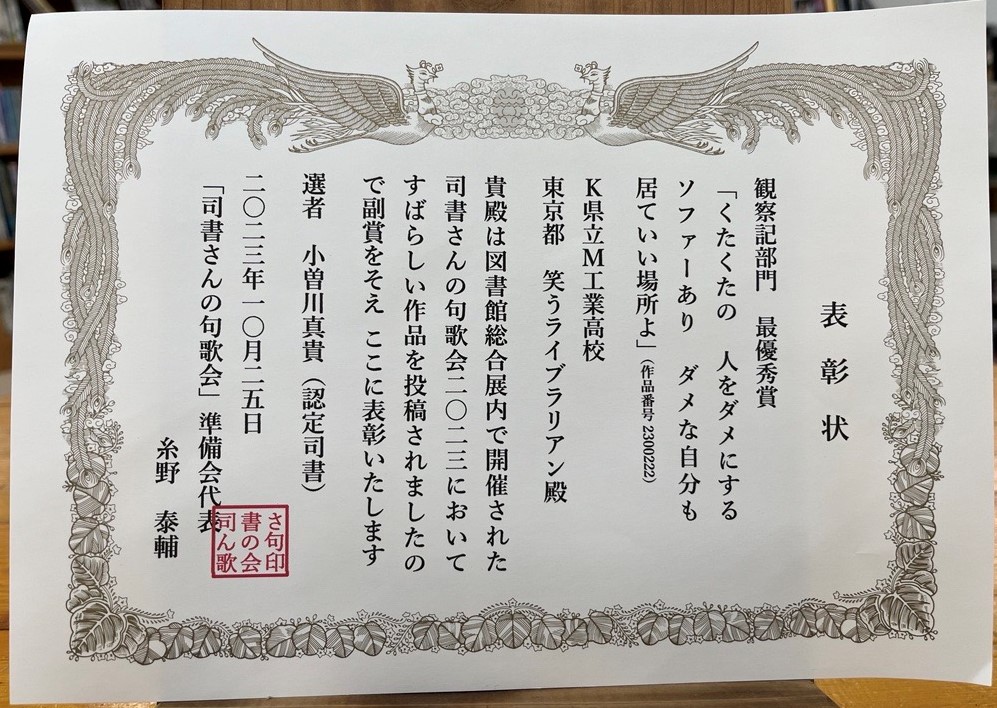 表彰状
観察記部門　最優秀賞
「くたくたの　人をダメにする
ソファーあり　ダメな自分も
居ていい場所よ」（作品番号 2300222）
K県立M工業高校
東京都　笑うライブラリアン殿
貴殿は図書館総合展内で開催された
司書さんの句歌会二〇二三において
すばらしい作品を投稿されましたの
で副賞をそえ ここに表彰いたします
選者　小曽川真貴（認定司書）
二〇二三年一〇月二五日
「司書さんの句歌会」準備会代表
糸野　泰輔
さ句印
書の会
司ん歌